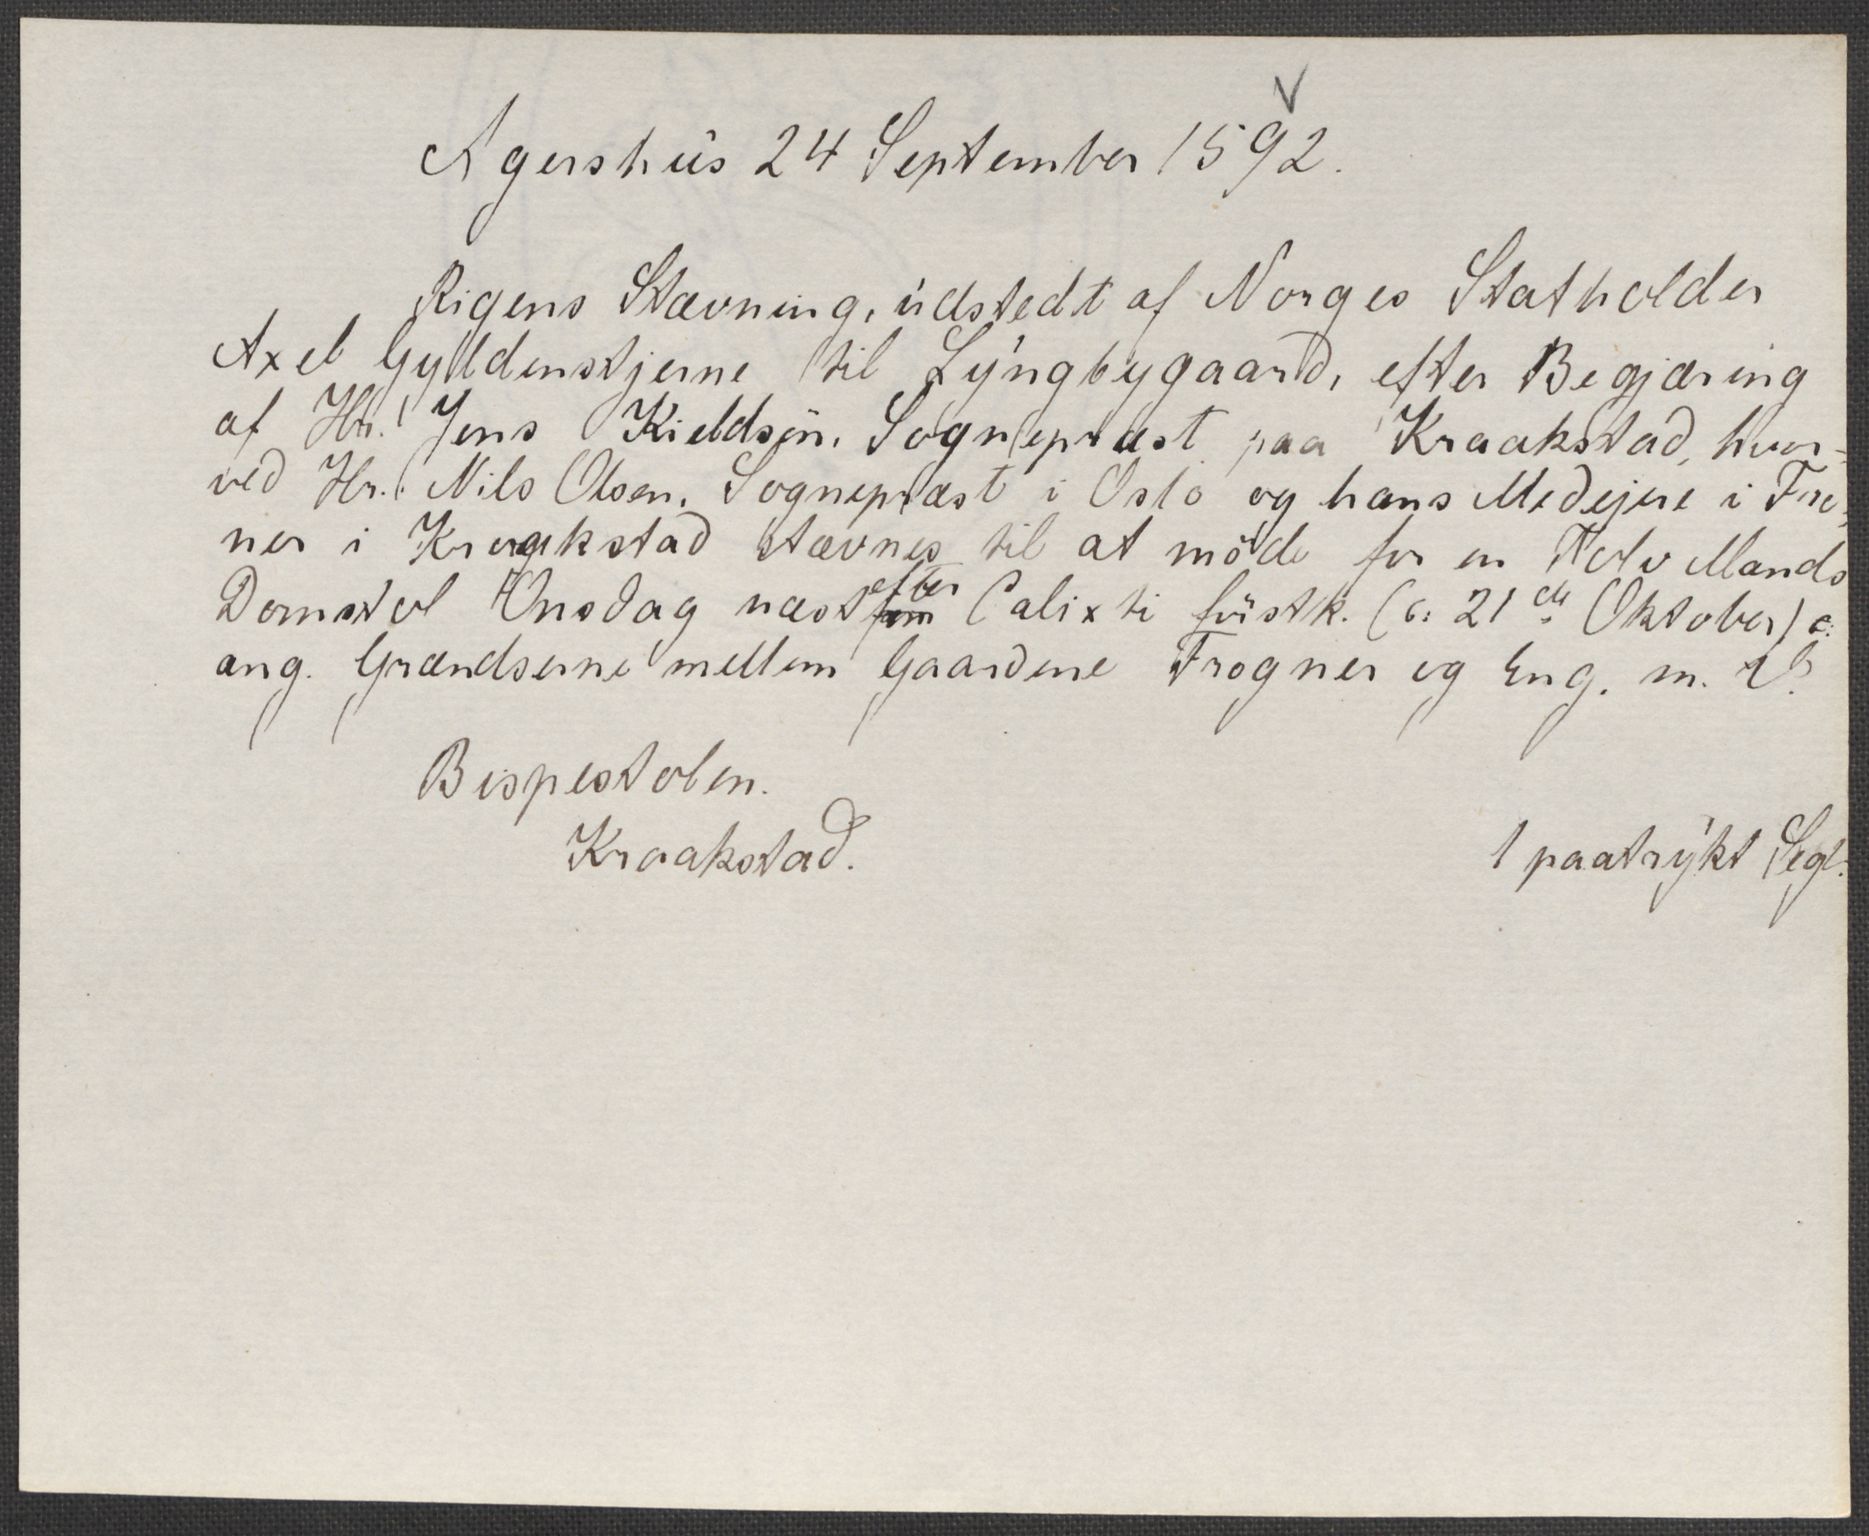 Agershús 24 September 1592.
Rigens Stævning, údstedt af Norges Statholder
Axel Gyldenstjerne til Lýngbygaard, efter Begjæring
af Hr. Jens Kieldsön, Sognepræst paa Kraakstad, hvor-
ved Hr. Nils Olsen, Sognepræst i Oslo og hans Medejere i Fro
ner i Kraakstad stævnes til at möde for en Tolv Mands
Domstol Onsdag næst efter Calixti förstk. (ɔ: 21de Oktober) ɔ:
ang. Grændserne mellem Gaardene Frogner og Eng. m. V.
Bispestolen.
Kraakstad.
1 paatrýkt Segl.